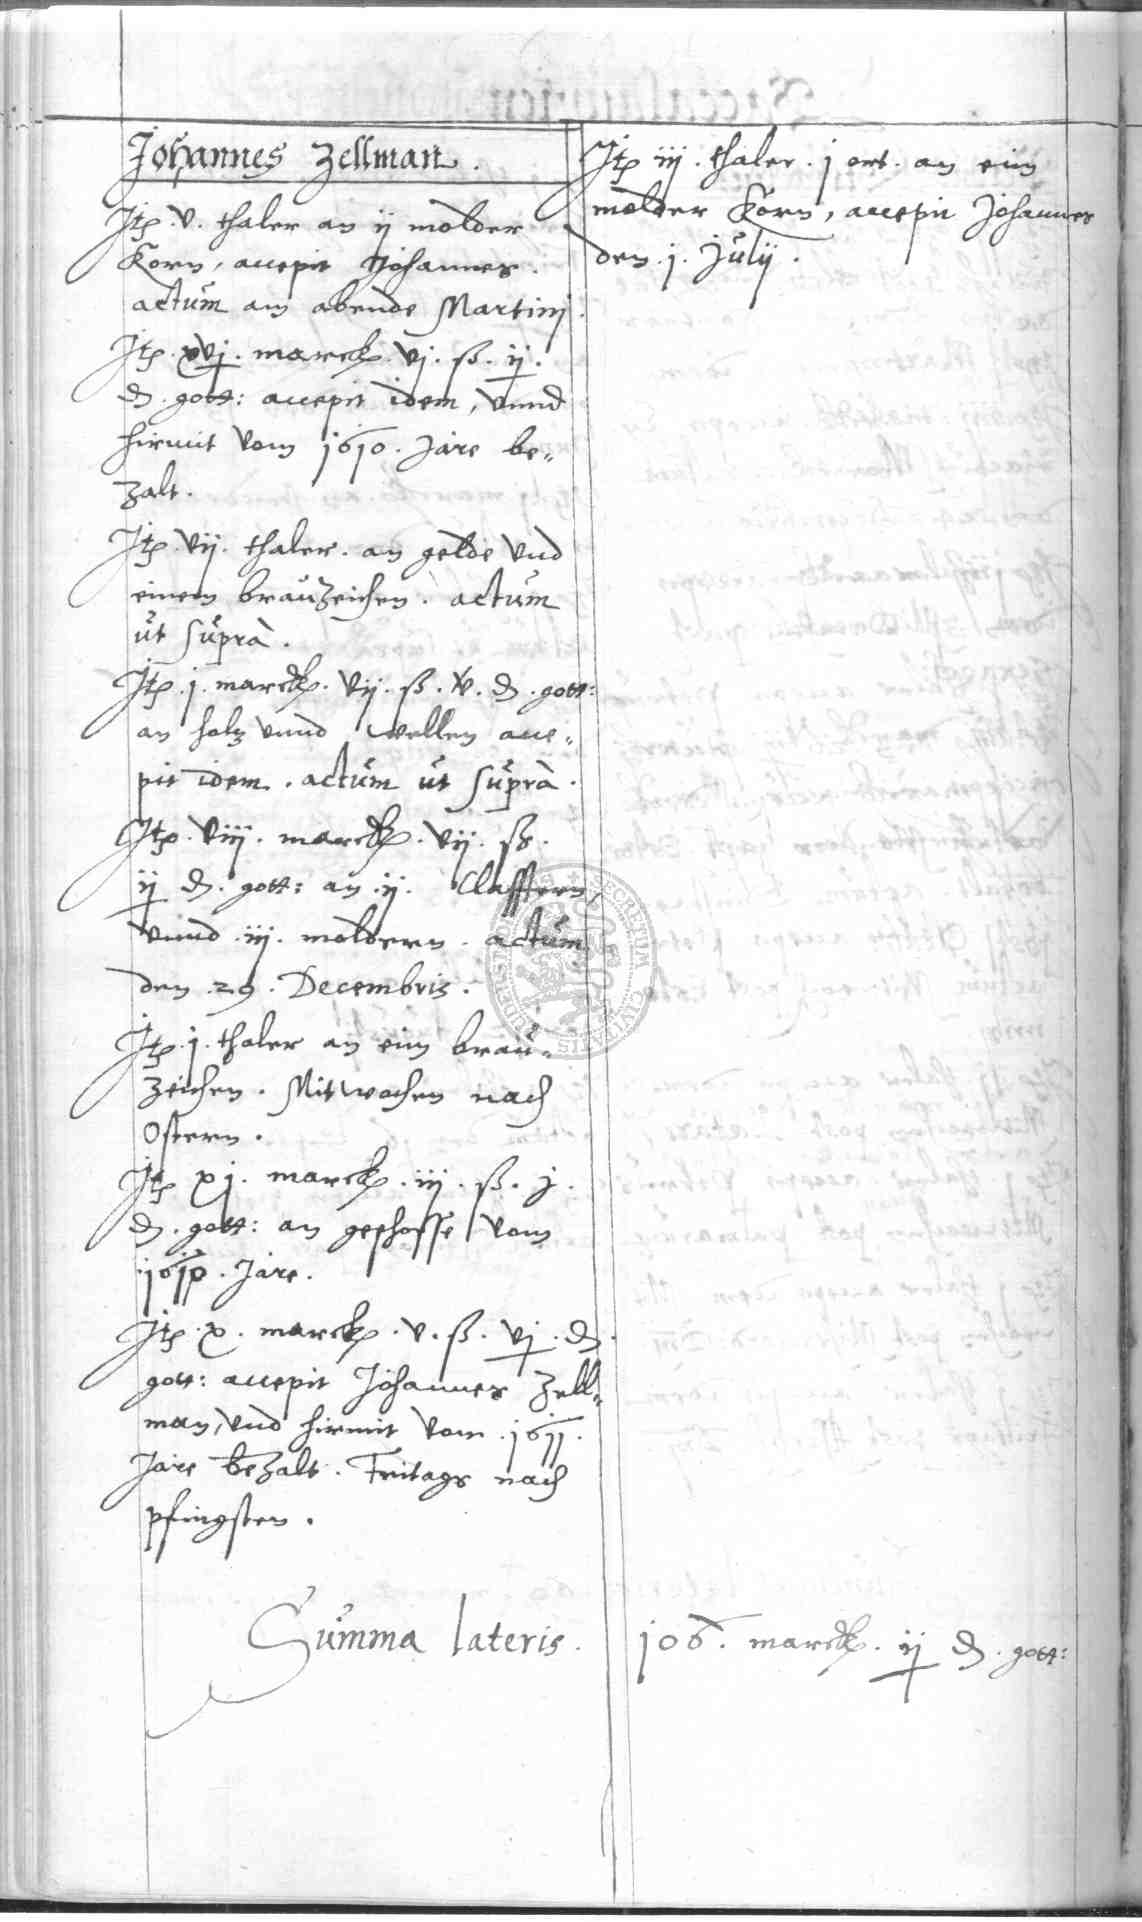 Johannes Zellman.
Itꝫ. v. thaler an ij molder
Korn, accepit Johannes.
actum am abende Martinj.
Itꝫ. xvj. marck. vj. ß. ij.
₰. gott: accepit idem, vnnd
hirmit vom 1610. Jare be„
zalt.
Itꝫ. vij. thaler. an gelde vnd
einem brauzeichen. actum
ut supra.
Itꝫ. j. marck. vij. ß. v. ₰. gott:
an holz vnnd wellen acce„
pit idem. actum ut supra.
Itꝫ. viij. marck. vij. ß.
ij ₰. gott: an ij. Clafftern,
vnnd iij. moldern. actum
den 29. Decembris.
Itꝫ. j. thaler an eim brau„
zeichen. Mitwochen nach
Ostern.
Itꝫ xj. marck. iij. ß. j.
₰. gott: an geschosse vom
1610. Jare.
Itꝫ. x. marck. v. ß. vj. ₰.
gott: accepit Johannes Zell„
man, vnd hirmit vom 1611.
Jare bezalt. Freitags nach
pfingsten.
Itꝫ iij. thaler. j ort. an eim
molder Korn, accepit Johannes
den. j. Julij.
Summa lateris. 106. marck. ij ₰. gott:
SECRETUM CIVITATIS